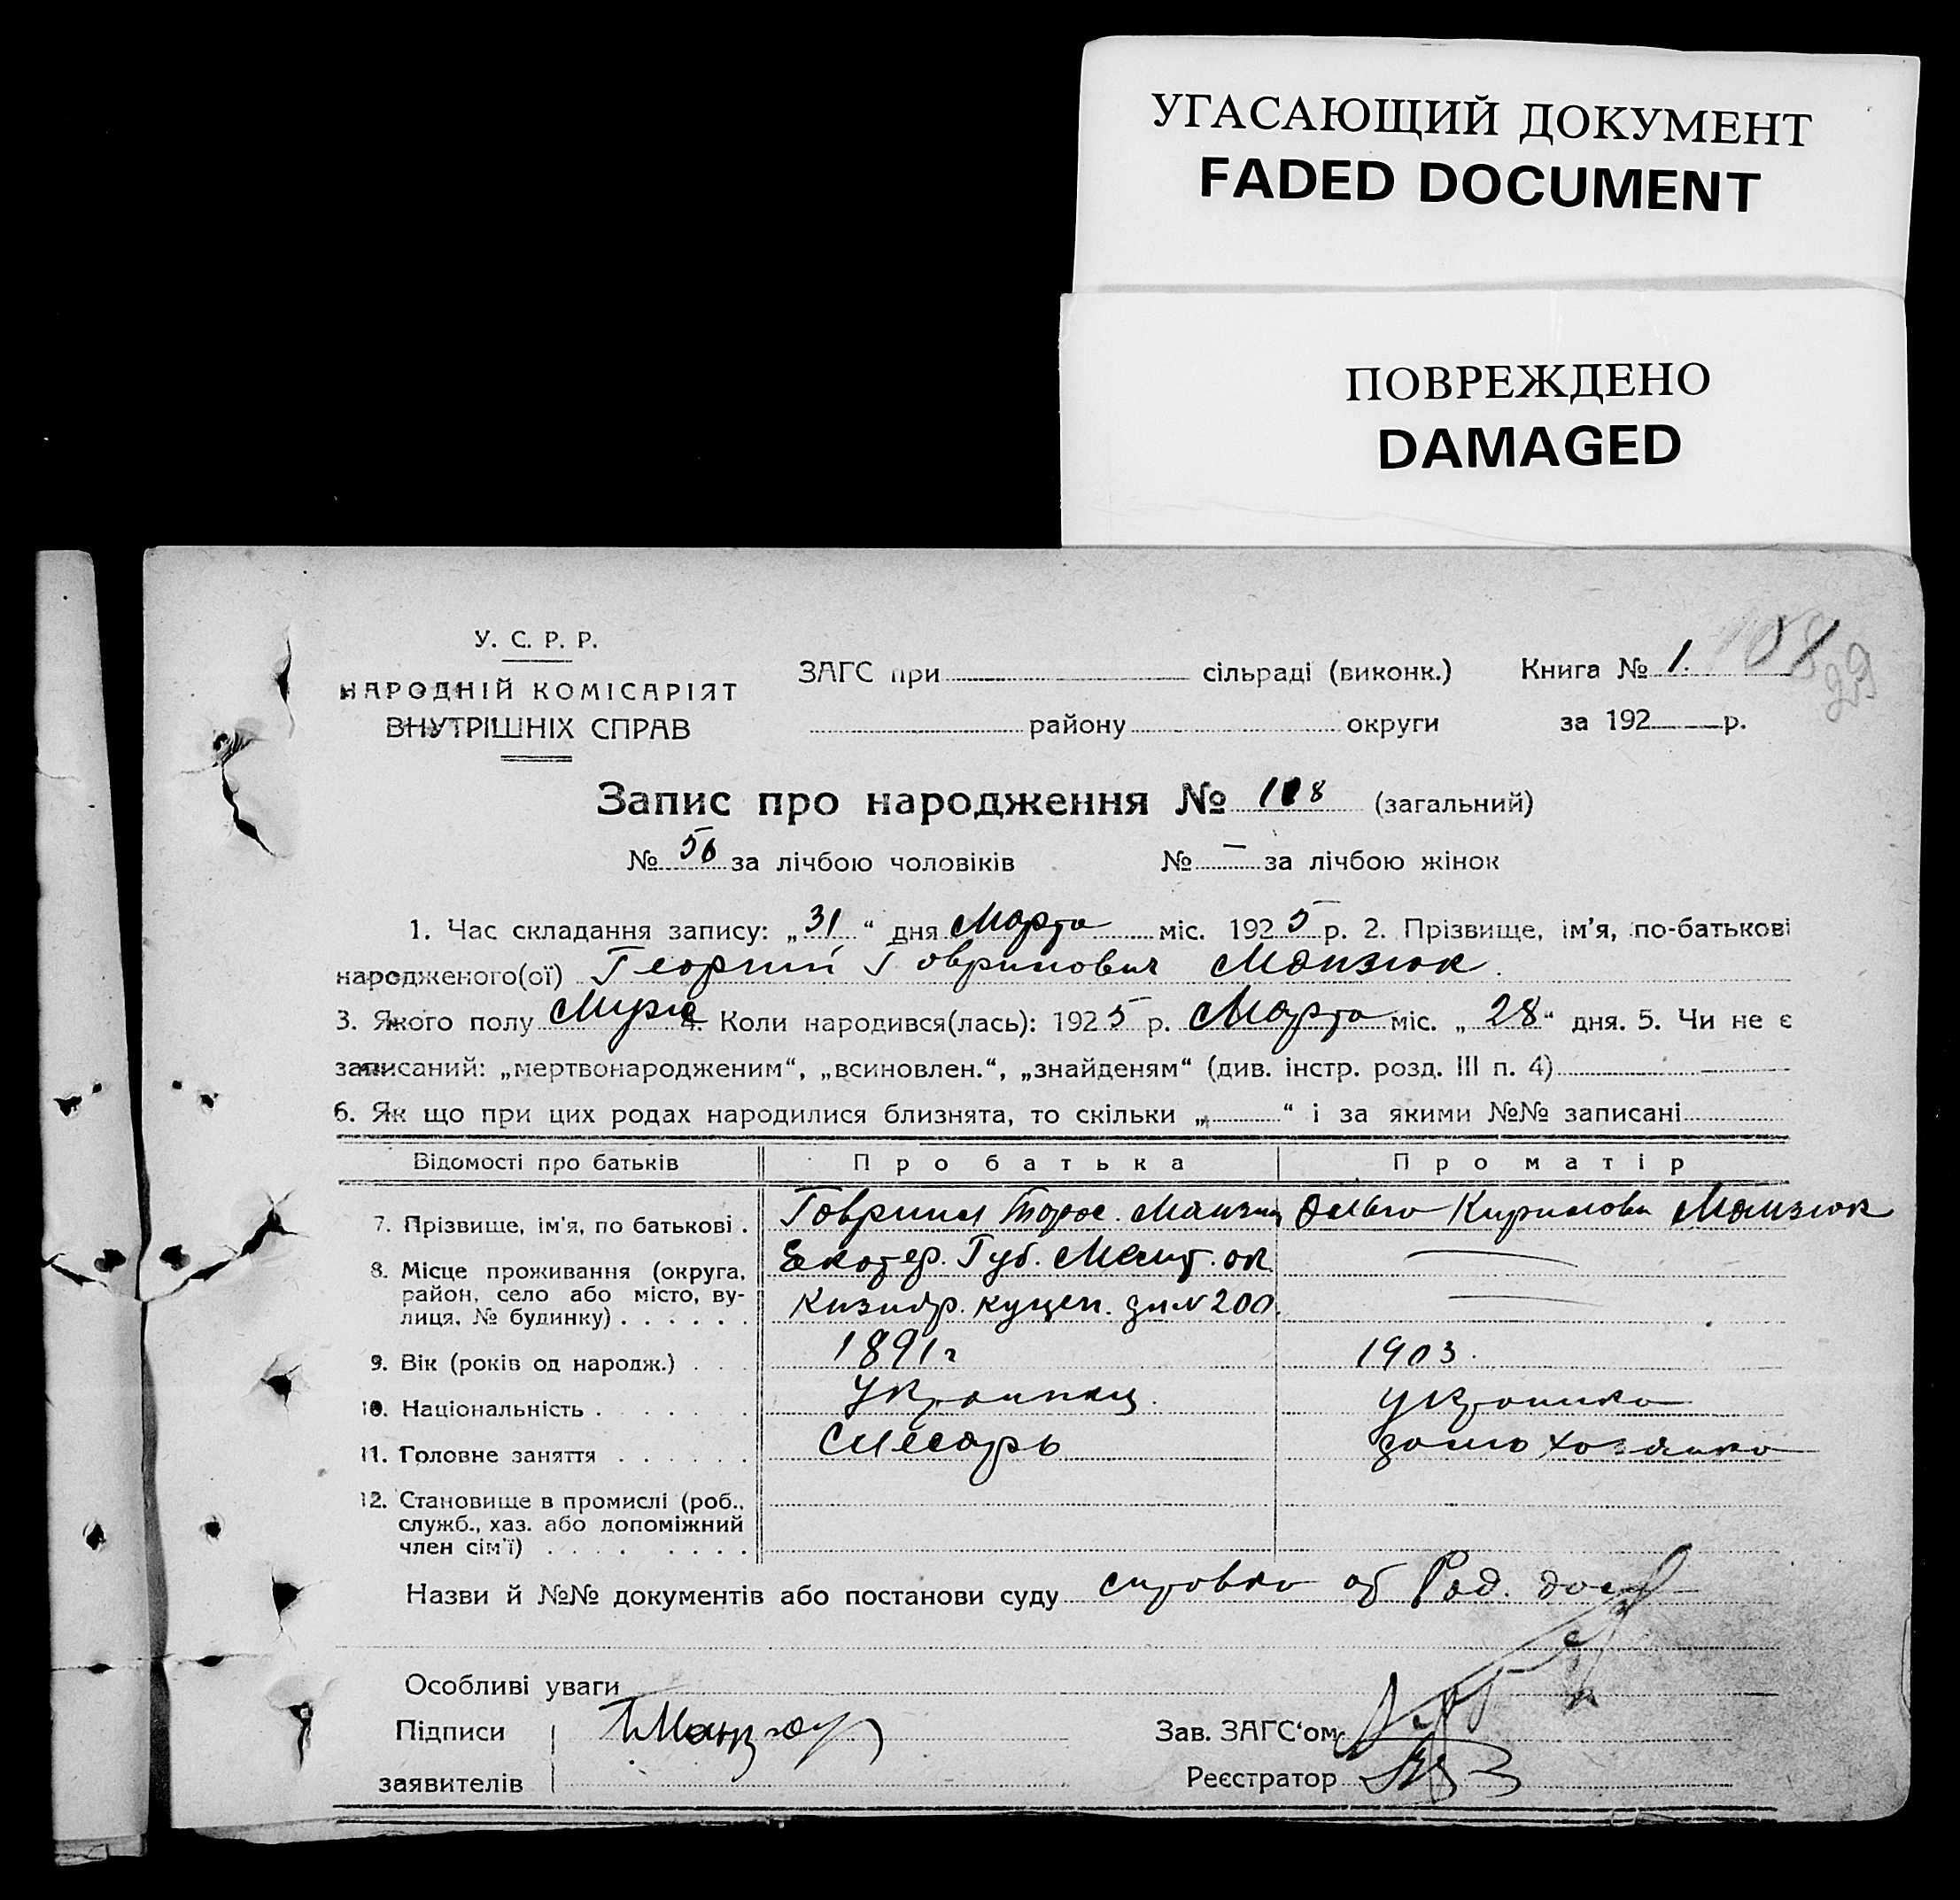 УГАСАЮЩИЙ ДОКУМЕНТ
FADED DOCUMENT
ПОВРЕЖДЕНО
DAMAGED
У. С. Р. Р.
НАРОДНІЙ КОМІСАРІЯТ
ВНУТРІШНІХ СПРАВ
ЗАГС при сільраді (виконк.)
району округи
Книга № 1.
за 192 р.
29
Запис про народження № 108 (загальний)
№ 56 за лічбою чоловіків № — за лічбою жінок
1. Час складання запису: „31“ дня Марта міс. 1925 р. 2. Прізвище, ім'я, по-батькові
народженого(ої) Георгий Гаврилович Манзюк.
3. Якого полу Муж 4. Коли народився(лась): 1925 р. Марта міс. „28“ дня. 5. Чи не є
записаний: „мертвонародженим“, „всиновлен.“, „знайденям“ (див. інстр. розд. III п. 4)
6. Як що при цих родах народилися близнята, то скільки „ “ і за якими №№ записані
Відомості про батьків Про батька Про матір
7. Прізвище, ім'я, по батькові . Гавриил Тарас. Манзюк Кирилова Манзюк
8. Місце проживання (округа, район, село або місто, вулиця, № будинку) Екатер. Губ. ок — 
дм № 200. —
9. Вік (років од народж.) 1891 г 1903.
10. Національність Украинец. Украинка
11. Головне заняття Слесарь домохозяйка
12. Становище в промислі (роб.,
служб., хаз. або допоміжний
член сім'ї)
Назви й №№ документів або постанови суду справка об Род. дома
Особливі уваги
Підписи
заявителів
Зав. ЗАГС'ом
Реєстратор